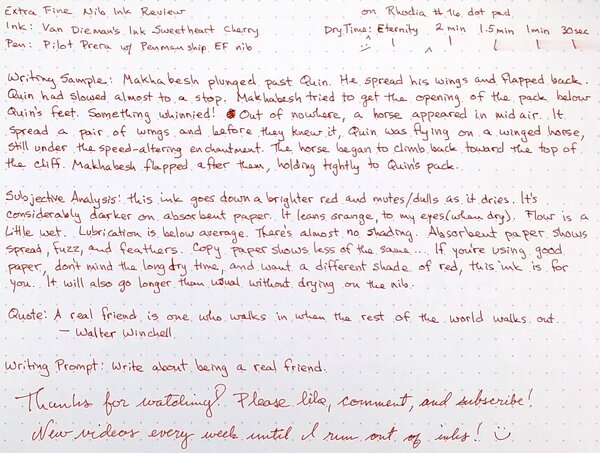 Extra Fine Nib Ink Review on Rhodia #16 dot pad
Ink: Van Dieman's Ink Sweetheart Cherry Dry Time: Eternity 2 min 1.5 min 1 min 30 sec
Pen: Pilot Prera w/ Penmanship EF nib
Writing Sample: Makhabesh plunged past Quin. He spread his wings and flapped back.
Quin had slowed almost to a stop. Makhabesh tried to get the opening of the pack below
Quin's feet. Something whinnied! Out of nowhere, a horse appeared in mid air. It
spread a pair of wings and before they knew it, Quin was flying on a winged horse,
still under the speed-altering enchantment. The horse began to climb back toward the top of
the cliff. Makhabesh flapped after them, holding tightly to Quin's pack.
Subjective Analysis: this ink goes down a brighter red and mutes/dulls as it dries. It's
considerably darker on absorbent paper. It leans orange, to my eyes (when dry). Flow is a
little wet. Lubrication is below average. There's almost no shading. Absorbent paper shows
spread, fuzz, and feathers. Copy paper shows less of the same.... If you're using good
paper, don't mind the long dry time, and want a different shade of red, this ink is for
you. It will also go longer than usual without drying on the nib.
Quote: A real friend is one who walks in when the rest of the world walks out.
— Walter Winchell
Writing Prompt: Write about being a real friend.
Thanks for watching! Please like, comment, and subscribe!
New videos every week until I run out of inks!